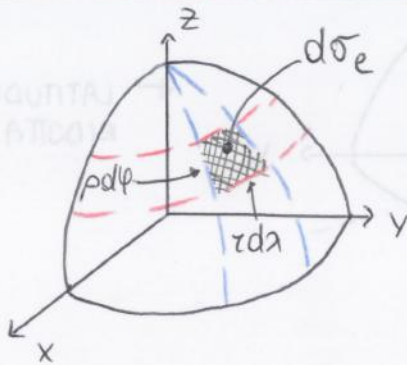 Z
dσe
ρdφ
rdλ
Y
X